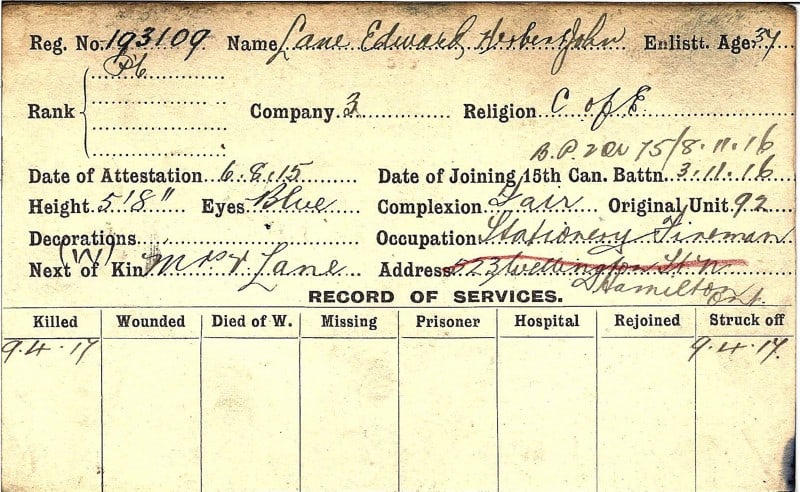 Reg. No. 193109 Name Lane Edward Herbert John Enlistt. Age 37
Pte
Rank Company 3 Religion C of E
B.P. 2 OR 75/8.11.16
Date of Attestation 6.8.15 Date of Joining 15th Can. Battn. 3.11.16
Height 5'8" Eyes Blue Complexion Fair Original Unit 92
Decorations Occupation Stationery Fireman
(W)
Next of Kin Mrs Lane Address 523 Wellington St N
Hamilton Ont.
RECORD OF SERVICES.
Killed Wounded Died of W. Missing Prisoner Hospital Rejoined Struck off
9.4.17 9.4.17